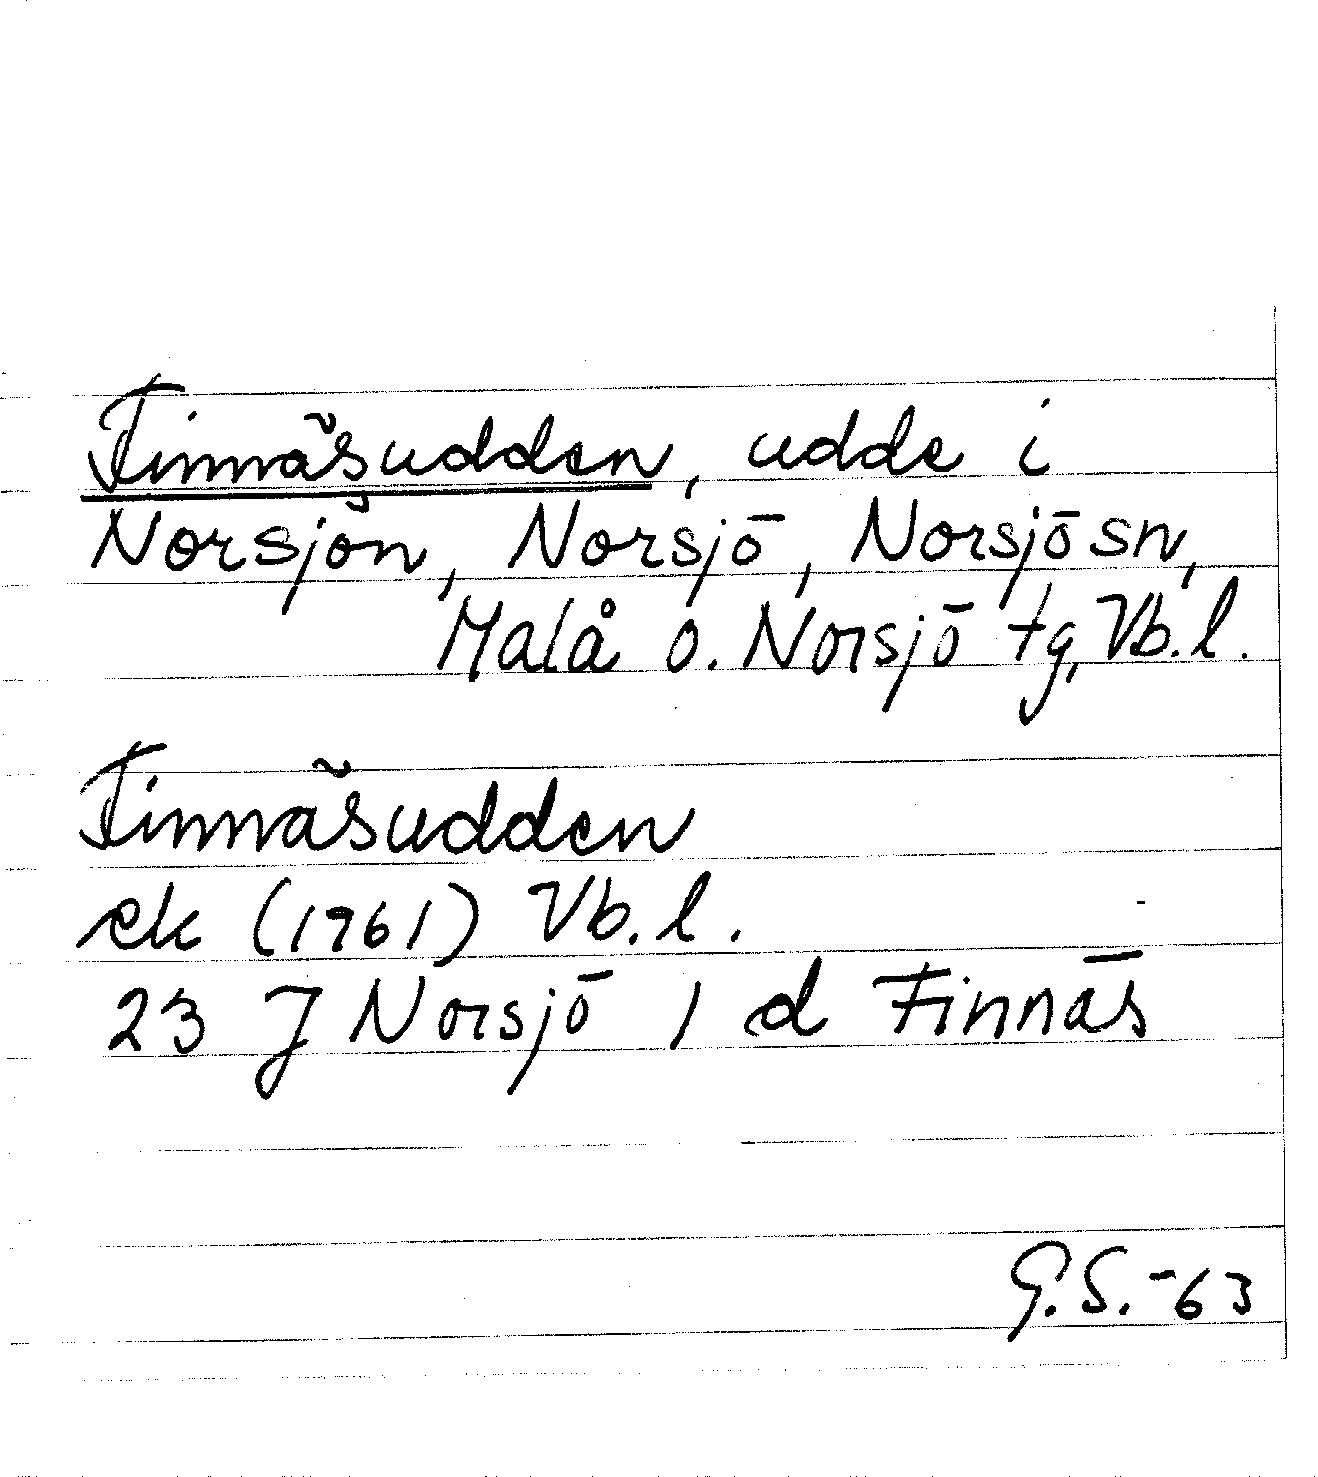 Finnäsudden, udde i
Norsjön, Norsjö, Norsjö sn,
Malå o. Norsjö tg, Vb.l.
Finnäsudden
ek (1961) Vb.l.
23 J Norsjö 1 d Finnäs
G.S.-63